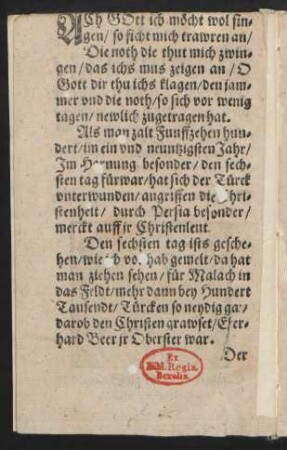 ACh GOtt ich möcht wol sin-
gen/ so ficht mich trawren an/
Die noth die thut mich zwin-
gen/ das ichs mus zeigen an/ O
Gott dir thu ichs klagen/ den jam-
mer vnd die noth/ so sich vor wenig
tagen/ newlich zugetragen hat.
Als man zalt Funffzehen hun-
dert/ im ein vnd neuntzigsten Jahr/
Im Hornung besonder/ den sech-
sten tag fürwar/ hat sich der Türck
vnterwunden/ angriffen die Chri-
stenheit/ durch Persia besonder/
merckt auff jr Christenleut.
Den sechsten tag ists gesche-
hen/ wie ich vor hab gemelt/ da hat
man ziehen sehen/ für Malach in
das Feldt/ mehr dann bey Hundert
Tausendt/ Türcken so neydig gar/
darob den Christen grawset/ Eber-
hard Beer jr Oberster war.
Der
Ex
Bibl. Regia
Berolin.